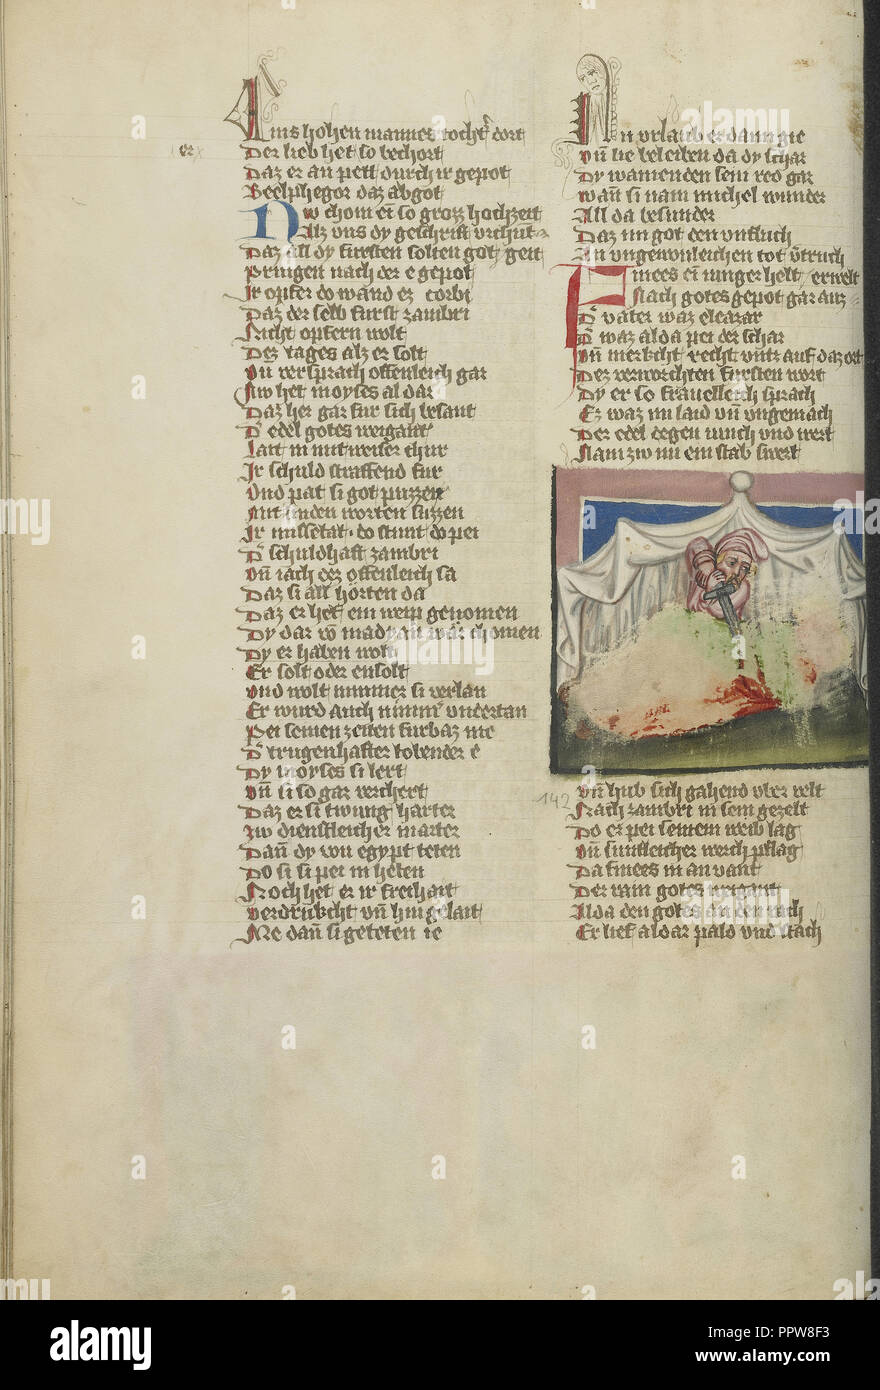 Ains hohen mannes tochter dort
er
Der lieb het so bechort
Daz er an pett durch ir gepot
Beelphegor daz abgot
Nw chom ein so grozz hochzeit
Alz uns dy geschrift urchunt
Daz all dy fursten solten gotz geit
Pringen nach der e gepot
Ir opfer do ward ez corbi
Daz der selb furst zambri
Nicht opfern wolt
Dez tages alz er solt
Vn̄ versprach offenleich gar
Nw het moyses al dar
Daz her gar fur sich besant
D' edel gotes weigant
Latt in mit weiser chur
Ir schuld straffend fur
Vnd pat si got puzzen
Mit linden worten suzzen
Ir missetat do stunt do pei
D' schuldhaft zambri
Vn̄ iach dez offenleich sa
Daz si all horten da
Daz er het ein weip genomen
Dy dar von madian wär chomen
Dy er haben wolt
Er solt oder ensolt
Vnd wolt nimmer si verlan
Er wurd auch nimmer undertan
Pei seinen zeiten furbaz me
D' trugenhafter tobender e
Dy moyses si lert
Vn̄ si so gar verchert
Daz er si twung harter
Zw dienstleicher marter
Dan̄ dy von egypt teten
Do si si pei in heten
Noch het er ir frechait
Verdrukcht vn̄ hin gelait
Me dan̄ si geteten ie
An urlaub er dann gie
Vn̄ lie beleiben da dy schar
Dy wainenden sein red gar
Wan̄ si nam michel wunder
All da besunder
Daz im got den unfluch
An ungewonleichen tot vertruch
Finees ein iunger helt erwelt
Nach gotes gepot gar auz
D' vater waz eleazar
D' waz alda pei der schar
Vn̄ merkcht recht untz auf daz ort
Dez verworchten fursten wort
Dy er so fräuelleich sprach
Ez waz im laid vn̄ ungemach
Der edel degen iunch und wert
Nam zw im ein stab swert
142
Vn̄ hub sich gahend uber velt
Nach zambri in sein gezelt
Do er pei seinem weib lag
Vn̄ suntleicher werch pflag
Da finees in an vant
Der rain gotes weigant
Alda den gotes anden rach
Er lief aldar pald und stach
alamy
Image ID: PPW8F3
www.alamy.com